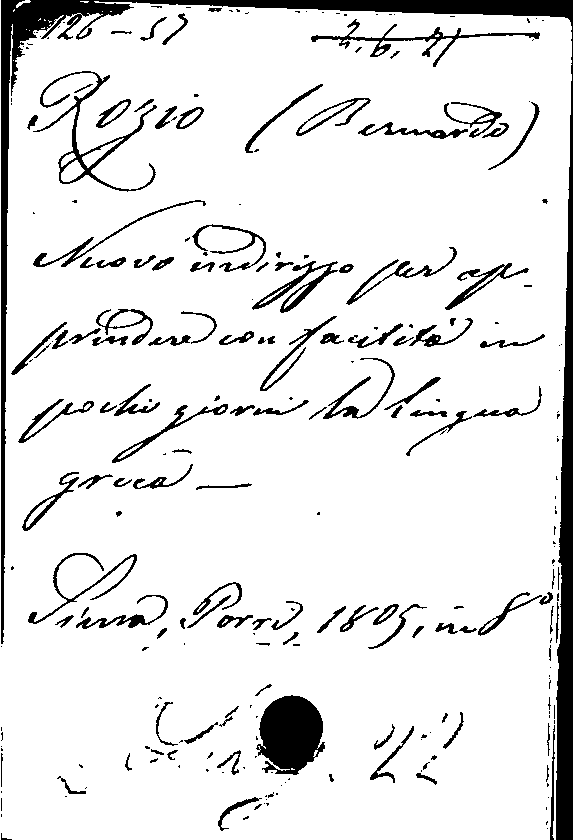 126-57 2. 6. 21
Rozio (Bernardo)
Nuovo indirizzo per ap-
prendere con facilità in
pochi giorni la lingua
greca —
Siena, Porri, 1805, in 8°
22